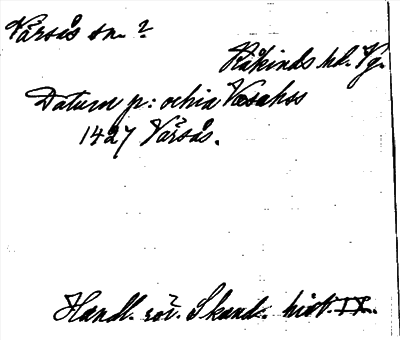 Vårsås sn. ?
Kåkinds hd. Vg.
Datum p: ochia Væsahss
1427 Vårsås.
Handl. rör. Skand. hist. IX.